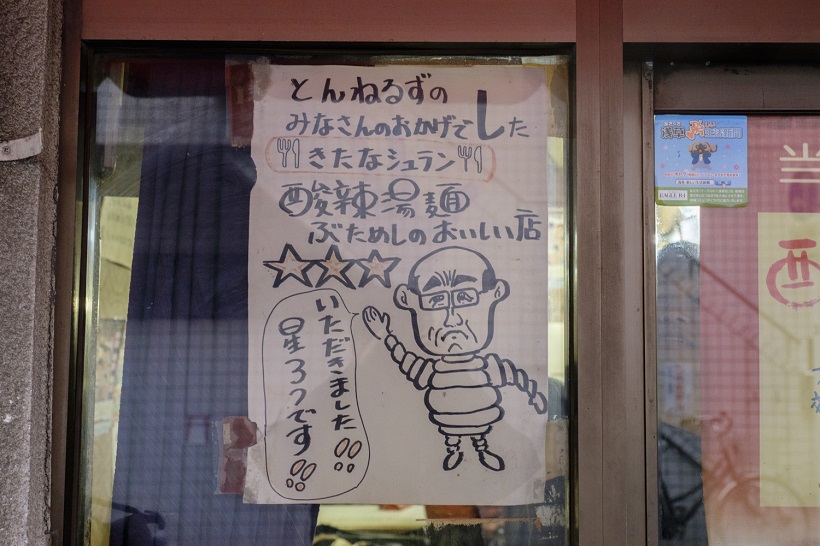 とんねるずの
みなさんのおかげでした
きたなシュラン
酸辣湯麺
ぶためしのおいしい店
いただきました!!
星3つです!!
EAGLE R1
当
酉